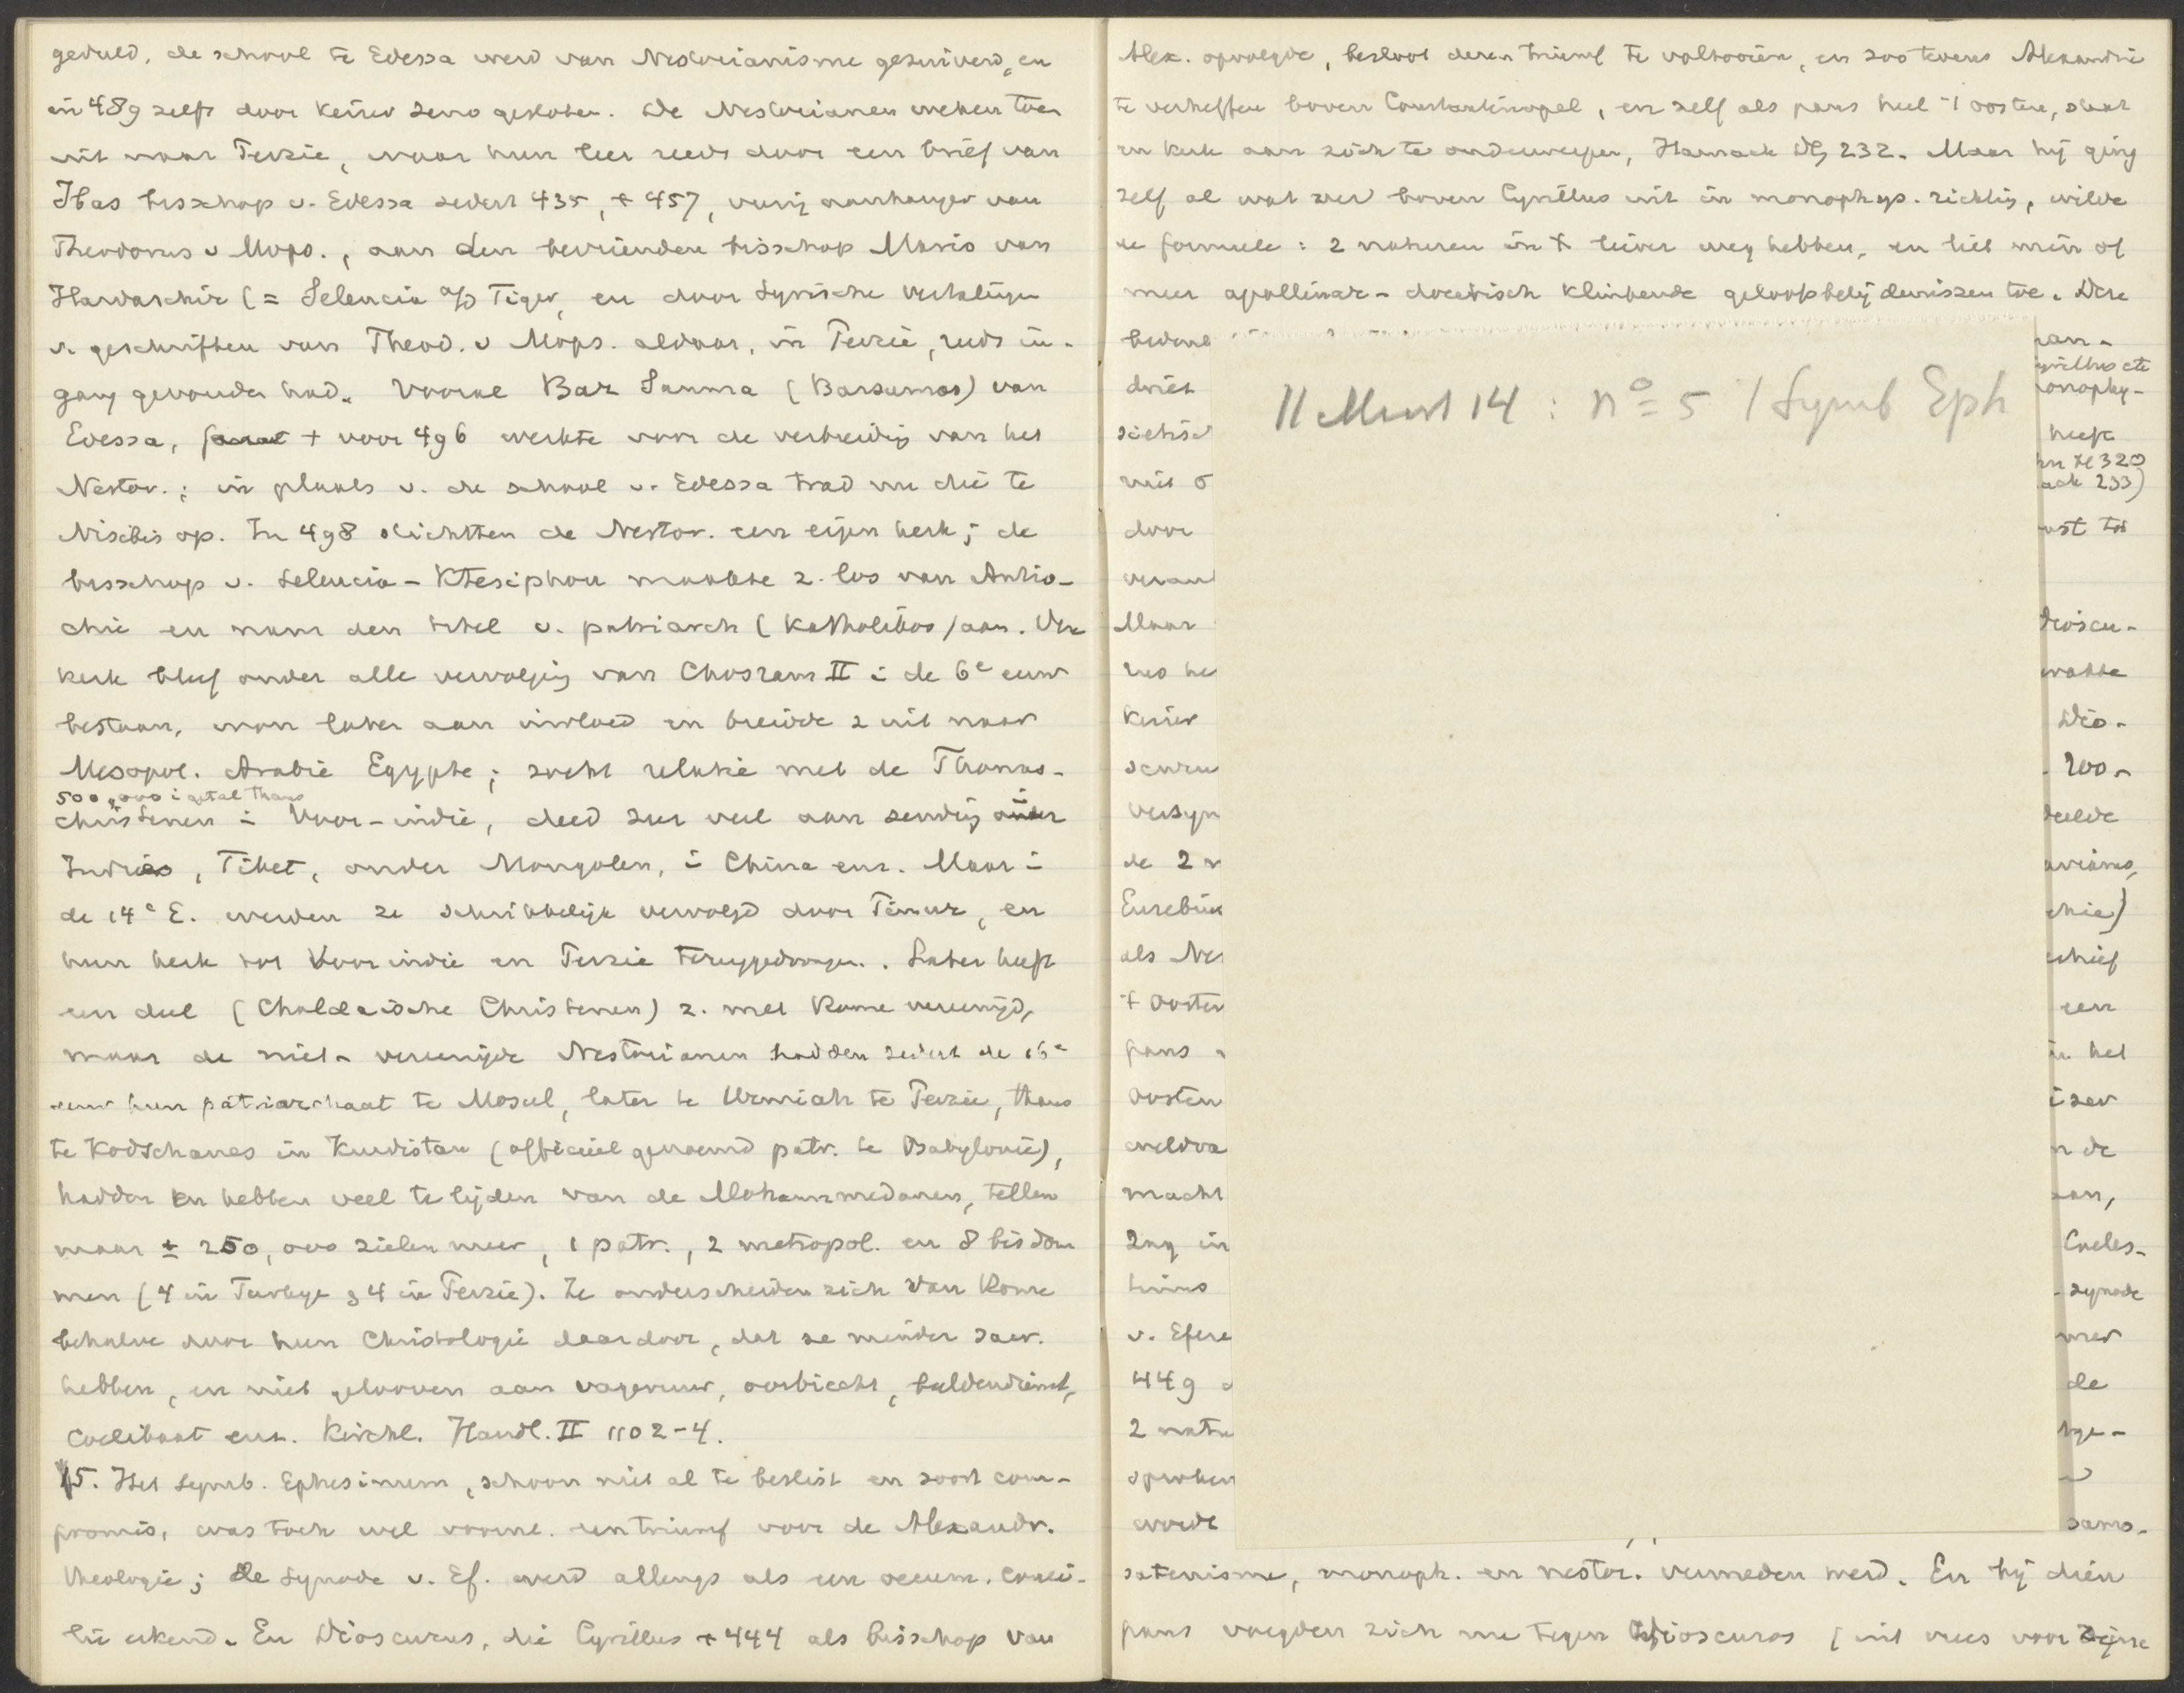 geduld, de school te Edessa werd van Nestorianisme gezuiverd, en
in 489 zelfs door keizer Zeno gesloten. De Nestorianen weken toen
uit naar Perzie, waar hun leer reeds door een brief van
Ibas bisschop v. Edessa sedert 435, + 457, vurig aanhanger van
Theodorus v Mops., aan den bevrienden bisschop Maris van
Hardaschir (= Seleucia a/d Tiger, en door Syrische vertalingen
v. geschriften van Theod. v Mops. aldaar, in Perzie, reeds in-
gang gevonden had. Vooral Bar Sauma (Barsumas) van
Edessa, + voor 496 werkte voor de verbreidig van het
Nestor.; in plaats v. de school v. Edessa trad nu die te
Nisibis op. In 498 stichtten de Nestor. een eigen kerk; de
bisschop v. Seleucia-Ktesiphon maakte z. los van Antio-
chie en nam den titel v. patriarch (Katholikos) aan. Deze
kerk bleef onder alle vervolgig van Chosram II i de 6e eeuw
bestaan, won later aan invloed en breidde z uit naar
Mesopot. Arabie Egypte; zocht relatie met de Thomas-
500,000 i getal thans
christenen i Voor-indie, deed zeer veel aan zendig i
Indie, Tibet, onder Mongolen, i China enz. Maar i
de 14e E. werden ze schrikkelijk vervolgd door Timur, en
hun kerk tot Voorindie en Perzie teruggedrongen. Later heeft
een deel (Chaldeische Christenen) z. met Rome vereenigd,
maar de niet-vereenigde Nestorianen hadden sedert de 16e
eeuw hun patriarchaat te Mosul, later te Urmiah te Perzie, thans
te Kodschanes in Kurdistan (officieel genoemd patr. te Babylonie),
hadden en hebben veel te lijden van de Mohammedanen, tellen
maar ± 250,000 zielen meer, 1 patr., 2 metropol. en 8 bisdom
men (4 in Turkye & 4 in Perzie). Ze onderscheiden zich van Rome
behalve door hun Christologie daardoor, dat ze minder sacr.
hebben, en niet gelooven aan vagevuur, oorbiecht, beeldendienst,
coelibaat enz. Kirchl. Handl. II 1102-4.
5. Het Symb. Ephesinum, schoon niet al te beslist en soort com-
promis, was toch wel voorn. een triumf voor de Alexandr.
theologie; de Synode v. Ef. werd allengs als een oecum. conci-
lie erkend. En Dioscurus, die Cyrillus + 444 als bisschop van
Alex. opvolgde, besloot deren triumf te voltooien, en zoo tevens Alexandrie
te verheffen boven Constantinopel, en zelf als paus heel 't oosten, staat
en kerk aan zich te onderwerpen, Harnack DG 232. Maar hij ging
zelf al wat zeer boven Cyrillus uit in monophys. richtig, wilde
de formule: 2 naturen in X liever weg hebben, en liet min of
meer apollinar-docetisch klinkende geloofsbelijdenissen toe. Deze
11 Maart 14 : no 5 / Symb Eph
heeft
320
233)
door
Maar
Dioscu-
keizer
Dio-
zoo-
de 2
Eusebius
als Nes
't Oosten
een
paus
het
Oosten
n de
macht
Coeles-
tinus
synode
v. Efeze
449
de
2 natu
worde
samo-
satenisme, monoph. en nestor. vermeden werd. En bij dien
paus voegden zich nu tegen Dioscuros (uit vrees voor zijne